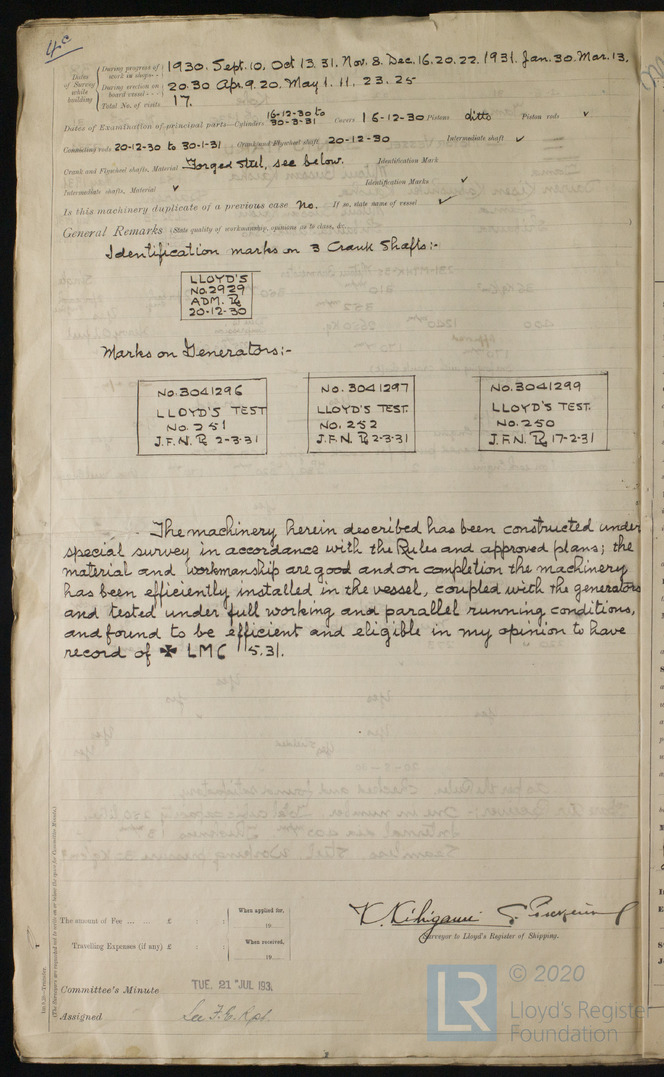 4c
Dates of Survey while building
During progress of work in shops - - 1930. Sept. 10, Oct 13. 31. Nov. 8. Dec. 16. 20. 22. 1931. Jan. 30. Mar. 13.
During erection on board vessel - - - 20. 30 Apr. 9. 20. May 1. 11. 23. 25
Total No. of visits 17.
Dates of Examination of principal parts—Cylinders 16-12-30 to 30-3-31 Covers 16-12-30 Pistons ditto Piston rods ✓
Connecting rods 20-12-30 to 30-1-31 Crank and Flywheel shaft 20-12-30 Intermediate shaft ✓
Crank and Flywheel shafts, Material Forged Steel, see below. Identification Mark
Intermediate shafts, Material ✓ Identification Marks ✓
Is this machinery duplicate of a previous case No. If so, state name of vessel ✓
General Remarks (State quality of workmanship, opinions as to class, &c.
Identification marks on 3 Crank Shafts:-
LLOYD'S
No. 2929
ADM. LR
20-12-30
Marks on Generators:-
No. 3041296
LLOYD'S TEST
No. 251
J.F.N. LR 2-3-31
No. 3041297
LLOYD'S TEST.
No. 252
J.F.N. LR 2-3-31
No. 3041299
LLOYD'S TEST.
No. 250
J.F.N. LR 17-2-31
The machinery herein described has been constructed under
special survey in accordance with the Rules and approved plans; the
material and workmanship are good and on completion the machinery
has been efficiently installed in the vessel, coupled with the generators
and tested under full working and parallel running conditions,
and found to be efficient and eligible in my opinion to have
record of ✠ LMC 5.31.
The amount of Fee ... ... £ : : When applied for,
19
Travelling Expenses (if any) £ : : When received,
19
Surveyor to Lloyd's Register of Shipping.
Committee's Minute TUE. 21 JUL 193
Assigned See F.E. Rpt.
LR © 2020
Lloyd's Register
Foundation